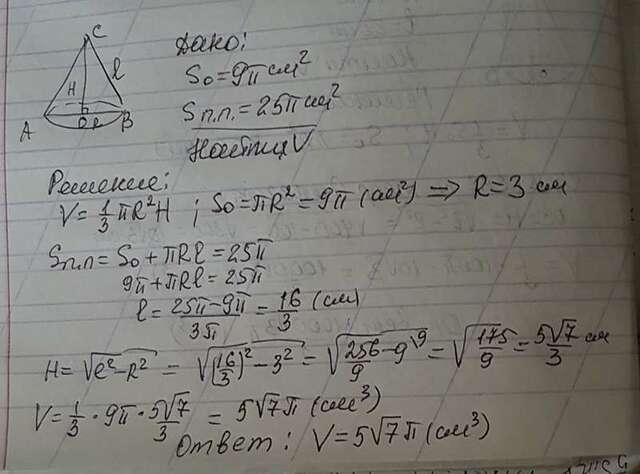 C
l
H
A
O
R
B
Дано:
Sо=9π см²
Sп.п.=25π см²
Найти V
Решение:
V=1/3 πR²H ; Sо=πR²=9π (см²) ⇒ R=3 см
Sп.п=Sо+πRl=25π
9π+πRl=25π
l=(25π-9π)/3π=16/3 (см)
H=√(l²-R²) = √((16/3)²-3²) = √(256/9-9\9) = √(175/9) = 5√7/3 см
V=1/3·9π·5√7/3 = 5√7π (см³)
Ответ: V=5√7π (см³)